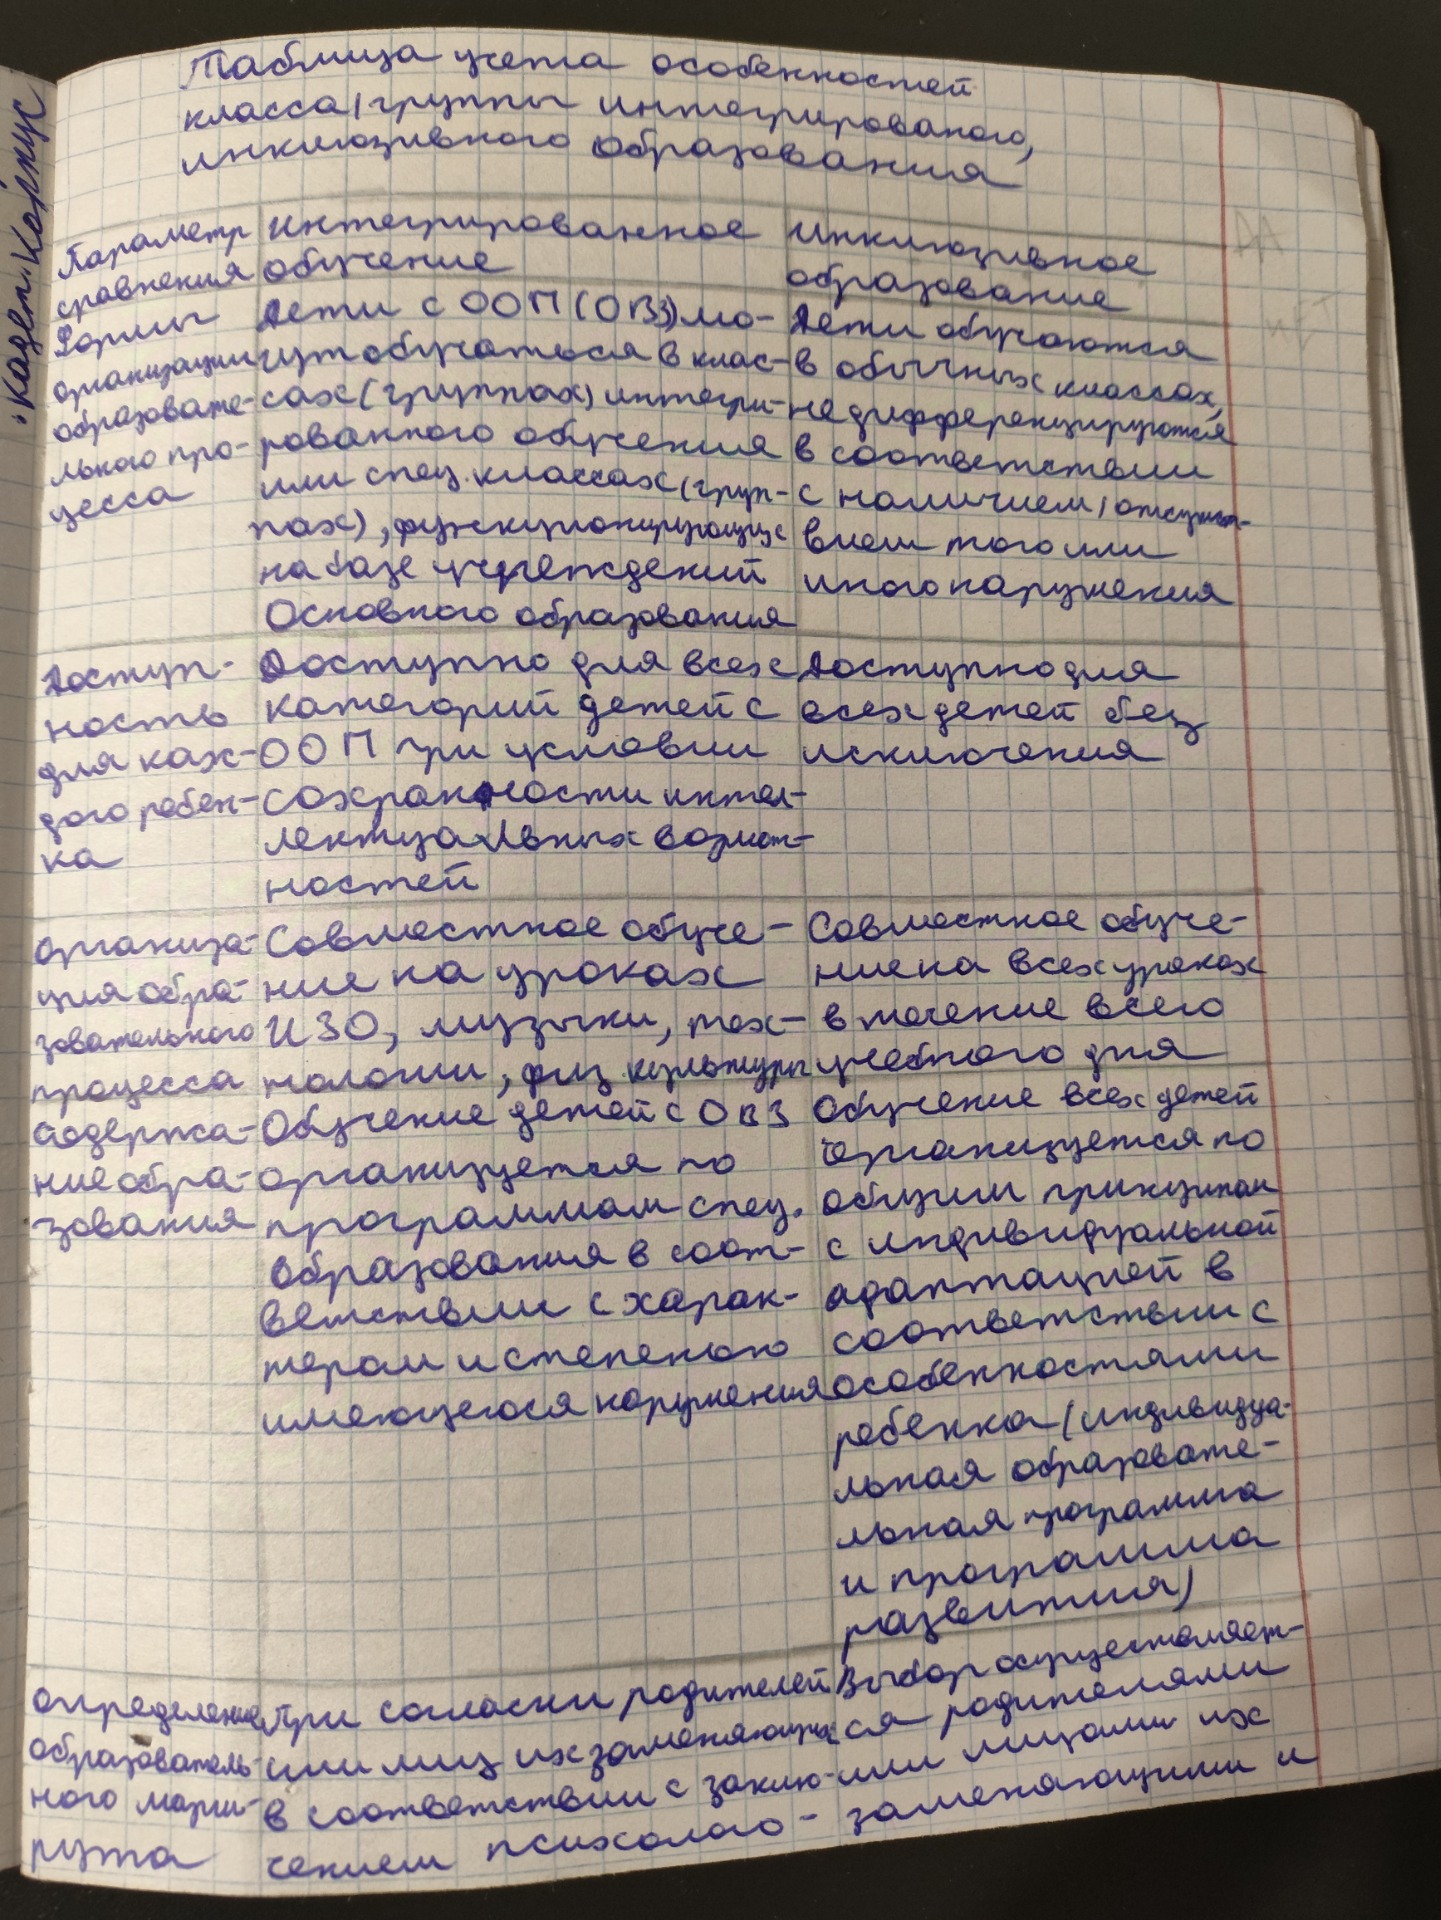 Таблица учета особенностей
класса/группы интегрированого,
инклюзивного образования
Параметр
сравнения
Интегрированное
обучение
Инклюзивное
образование
Формы
организации
образовате-
льного про-
цесса
Дети с ООП (ОВЗ) мо-
гут обучаться в клас-
сах (группах) интегри-
рованного обучения
или спец. классах (груп-
пах), функционирующих
на базе учреждений
Основного образования
Дети обучаются
в обычных классах,
не дифференцируются
в соответствии
с наличием/отсутст-
вием того или
иного нарушения
Доступ-
ность
для каж-
дого ребен-
ка
Доступно для всех
категорий детей с
ООП при условии
сохранности интел-
лектуальных возмож-
ностей
Доступно для
всех детей без
исключения
Организа-
ция обра-
зовательного
процесса
Совместное обуче-
ние на уроках
ИЗО, музыки, тех-
нологии, физ. культуры
Совместное обуче-
ние на всех уроках
в течение всего
учебного дня
Содержа-
ние обра-
зования
Обучение детей с ОВЗ
организуется по
программам спец.
образования в соот-
ветствии с харак-
тером и степенью
имеющегося нарушения
Обучение всех детей
организуется по
общим принципам
с индивидуальной
адаптацией в
соответствии с
особенностями
ребенка (индивидуа-
льная образовате-
льная программа
и программа
развития)
определение
образователь-
ного марш-
рута
При согласии родителей
или лиц их заменяющих
в соответствии с заклю-
чением психолого-
Выбор осуществляет-
ся родителями
или лицами их
заменяющими и
Кадет. Корпус